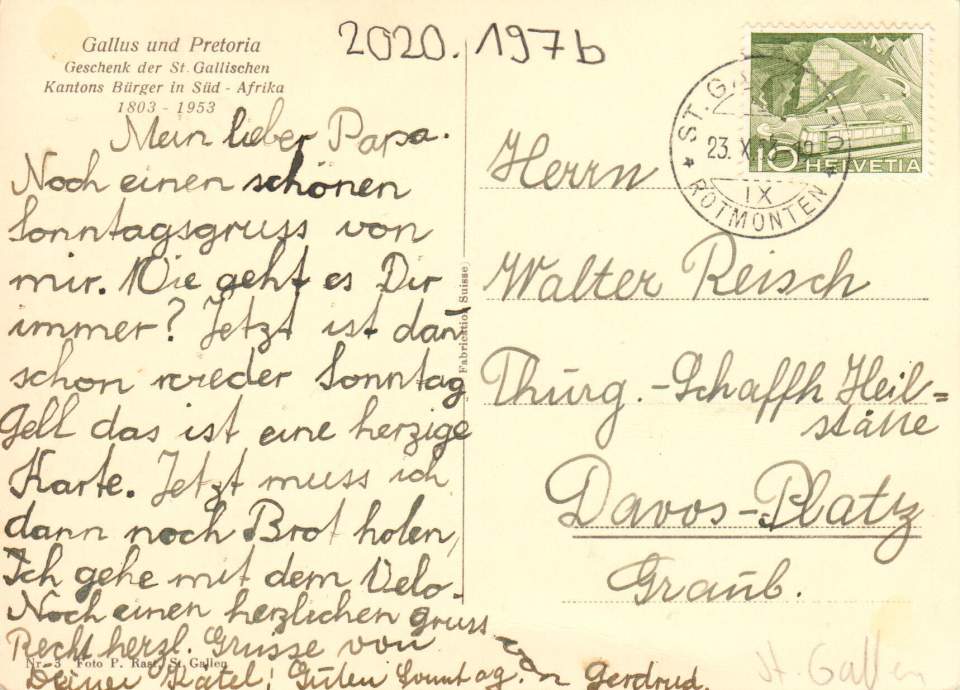 Gallus und Pretoria
Geschenk der St. Gallischen
Kantons Bürger in Süd - Afrika
1803 - 1953
2020.197b
Mein lieber Papa.
Noch einen schönen
Sonntagsgruss von
mir. Wie geht es Dir
immer? Jetzt ist dann
schon wieder Sonntag
Gell das ist eine herzige
Karte. Jetzt muss ich
dann noch Brot holen,
Ich gehe mit dem Velo.
Noch einen herzlichen gruss
Recht herzl. Grüsse von
Deiner Guten Sonntag. Gerdrud.
von
Nr. 3 Foto P. Rast, St. Gallen
Fabrication Suisse
ST. G
23. X
IX
ROTMONTEN
10 HELVETIA
Herrn
Walter Reisch
Thurg.-Schaffh Heil=
stätte
Davos-Platz
Graub.
St. Gallen